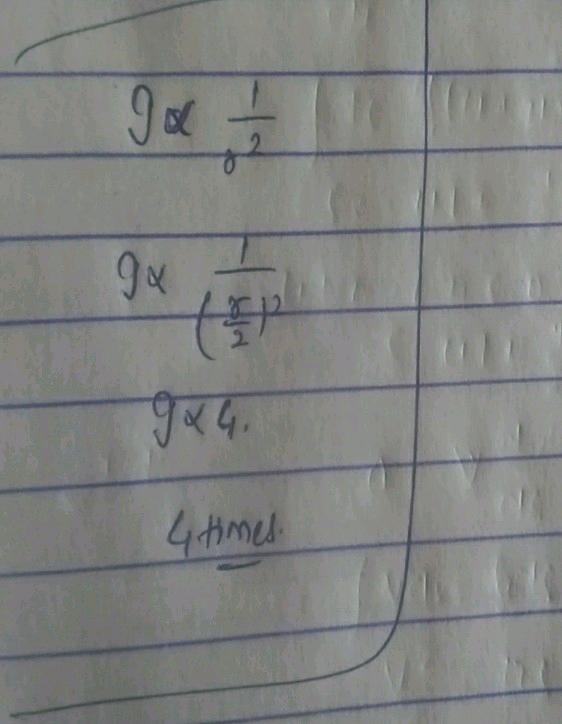 g ∝ 1/r²
g ∝ 1/(r/2)²
g ∝ 4.
4 times.